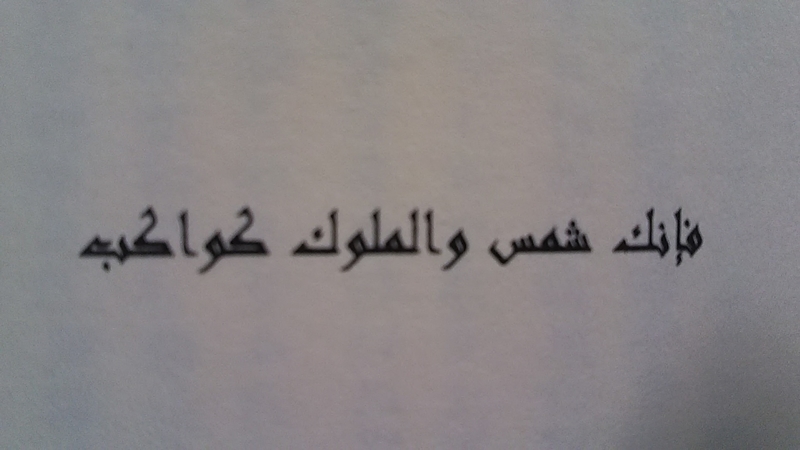 فإنك شمس والملوك كواكب